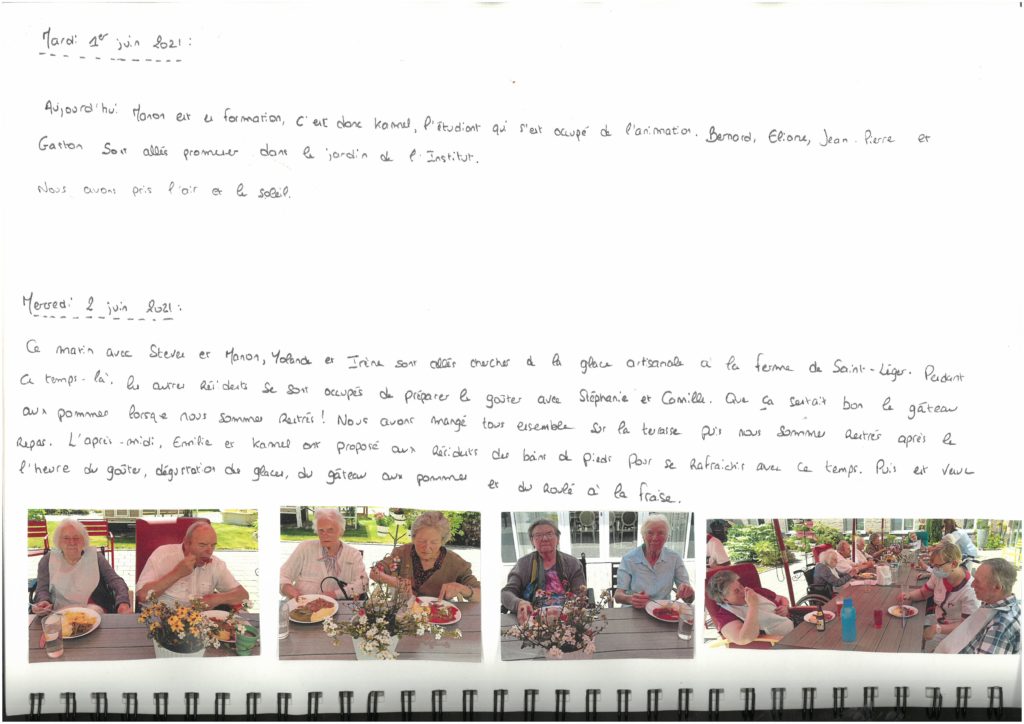 Mardi 1er juin 2021 :
Aujourd'hui Manon est en formation, c'est donc Kamel, l'étudiant qui s'est occupé de l'animation. Bernard, Eliane, Jean-Pierre et
Gaston sont allés promener dans le jardin de l'Institut.
Nous avons pris l'air et le soleil.
Mercredi 2 juin 2021 :
Ce matin avec Steven et Manon, Yolande et Irène sont allés chercher de la glace artisanale à la ferme de Saint-Léger. Pendant
ce temps-là, les autres Résidents se sont occupés de préparer le goûter avec Stéphanie et Camille. Que ça sentait bon le gâteau
aux pommes lorsque nous sommes Rentrés ! Nous avons mangé tous ensemble sur la terrasse puis nous sommes Rentrés après le
Repas. L'après-midi, Emilie et Kamel ont proposé aux Résidents des bains de pieds pour se Rafraichir avec ce temps. Puis est venue
l'heure du goûter, dégustation des glaces, du gâteau aux pommes et du Roulé à la fraise.